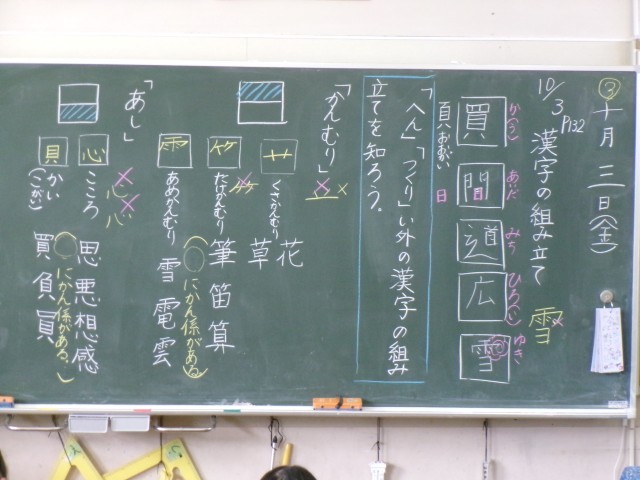 ③
十月三日(金)
10/3 P132
漢字の組み立て
雪
買 間 道 広 雪
か(う) あいだ みち ひろ(い) ゆき
頁 おおがい
日
「へん」「つくり」い外の漢字の組み
立てを知ろう。
「かんむり」
艹 くさかんむり
花
草
竹 たけかんむり
筆 笛 算
雨 あめかんむり
雪 電 雲
(○にかん係がある。)
「あし」
心 こころ
思 悪 想 感
(○にかん係がある。)
貝 かい(こがい)
買 負 員